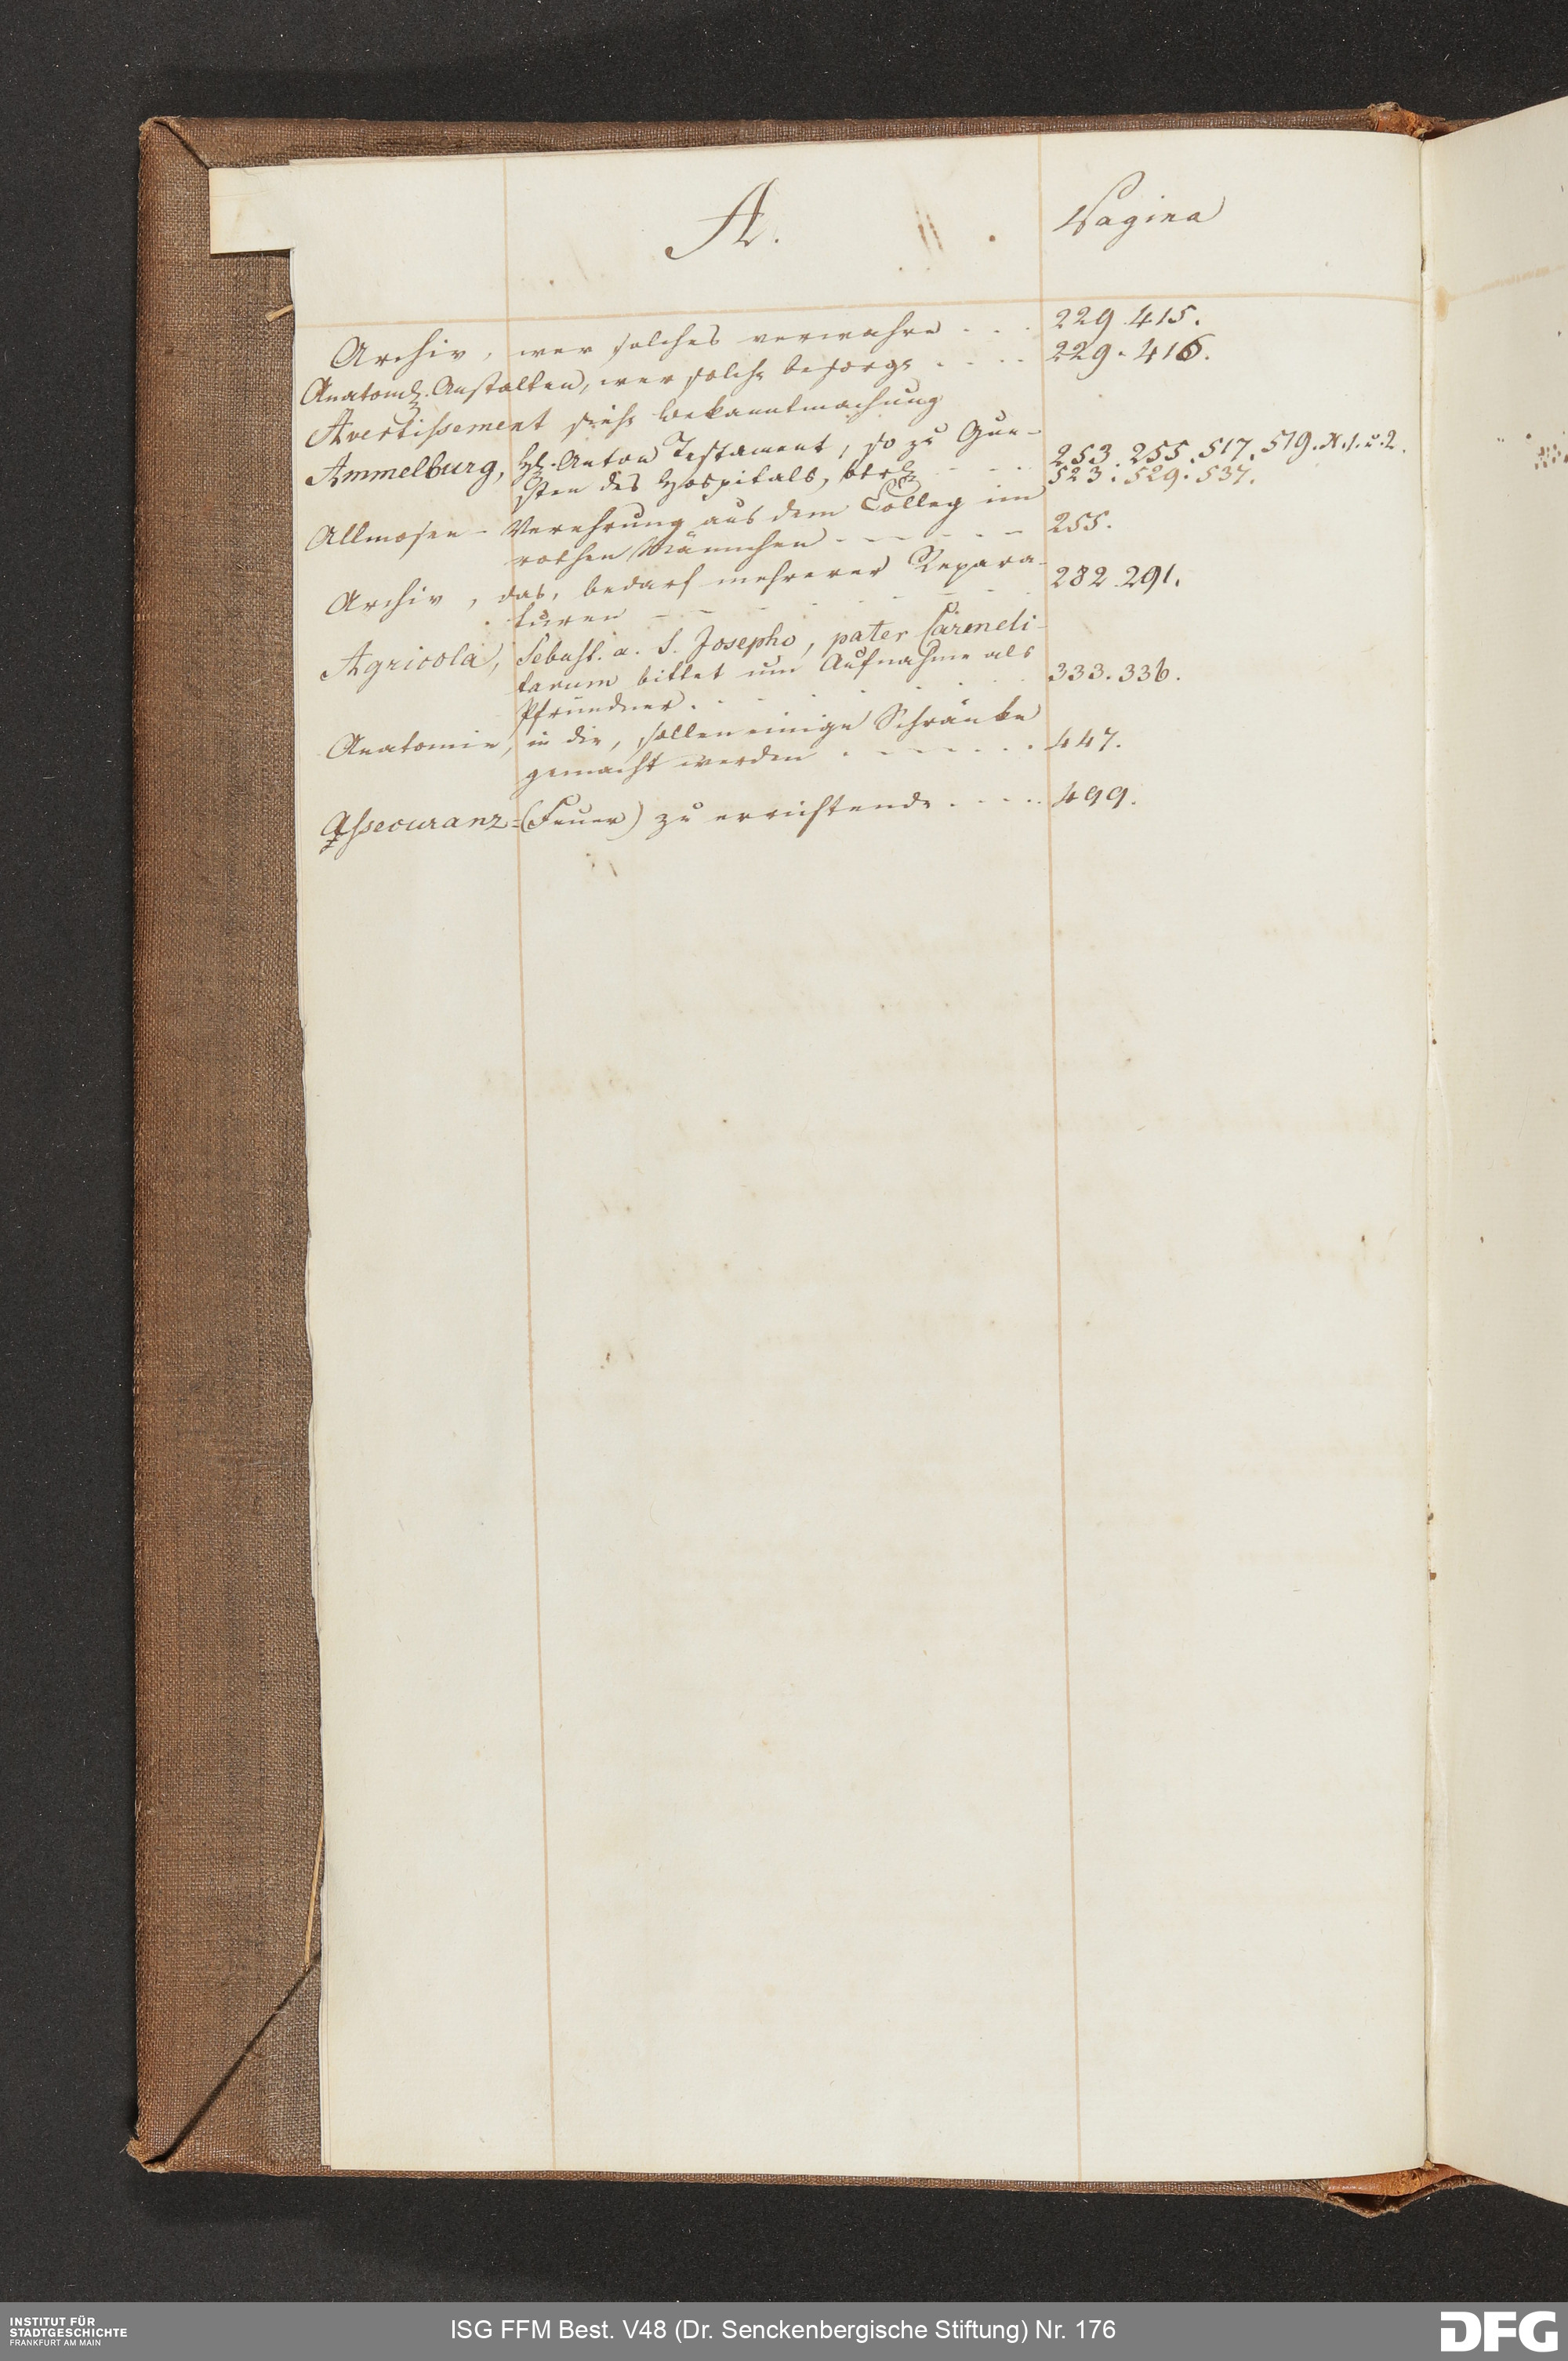 A.
Pagina
Archiv, wer solches verwahre . . . 229. 415.
Anatom. Anstalten, wer solche besorge . . . . 229. 416.
Avertissement siehe Bekanntmachung
Ammelburg, H. Anton Testament, so zu Gun-
sten des Hospitals, betr. - - - 253. 255. 517. 519. N. 1. u. 2.
523. 529. 537.
Allmosen-Verehrung aus dem Colleg im
rothen Männchen - - - - - - 255.
Archiv, das, bedarf mehrerer Repara-
turen - - - - - - 282. 291.
Agricola, Sebast. a. S. Josepho, pater Carmeli-
tarum bittet um Aufnahme als
Pfründner. . . . . . . 333. 336.
Anatomie, in die, sollen einige Schränke
gemacht werden . - - - - . . 447.
Assecuranz=(Feuer) zu errichtende . . . . . 499.
INSTITUT FÜR
STADTGESCHICHTE
FRANKFURT AM MAIN
ISG FFM Best. V48 (Dr. Senckenbergische Stiftung) Nr. 176
DFG